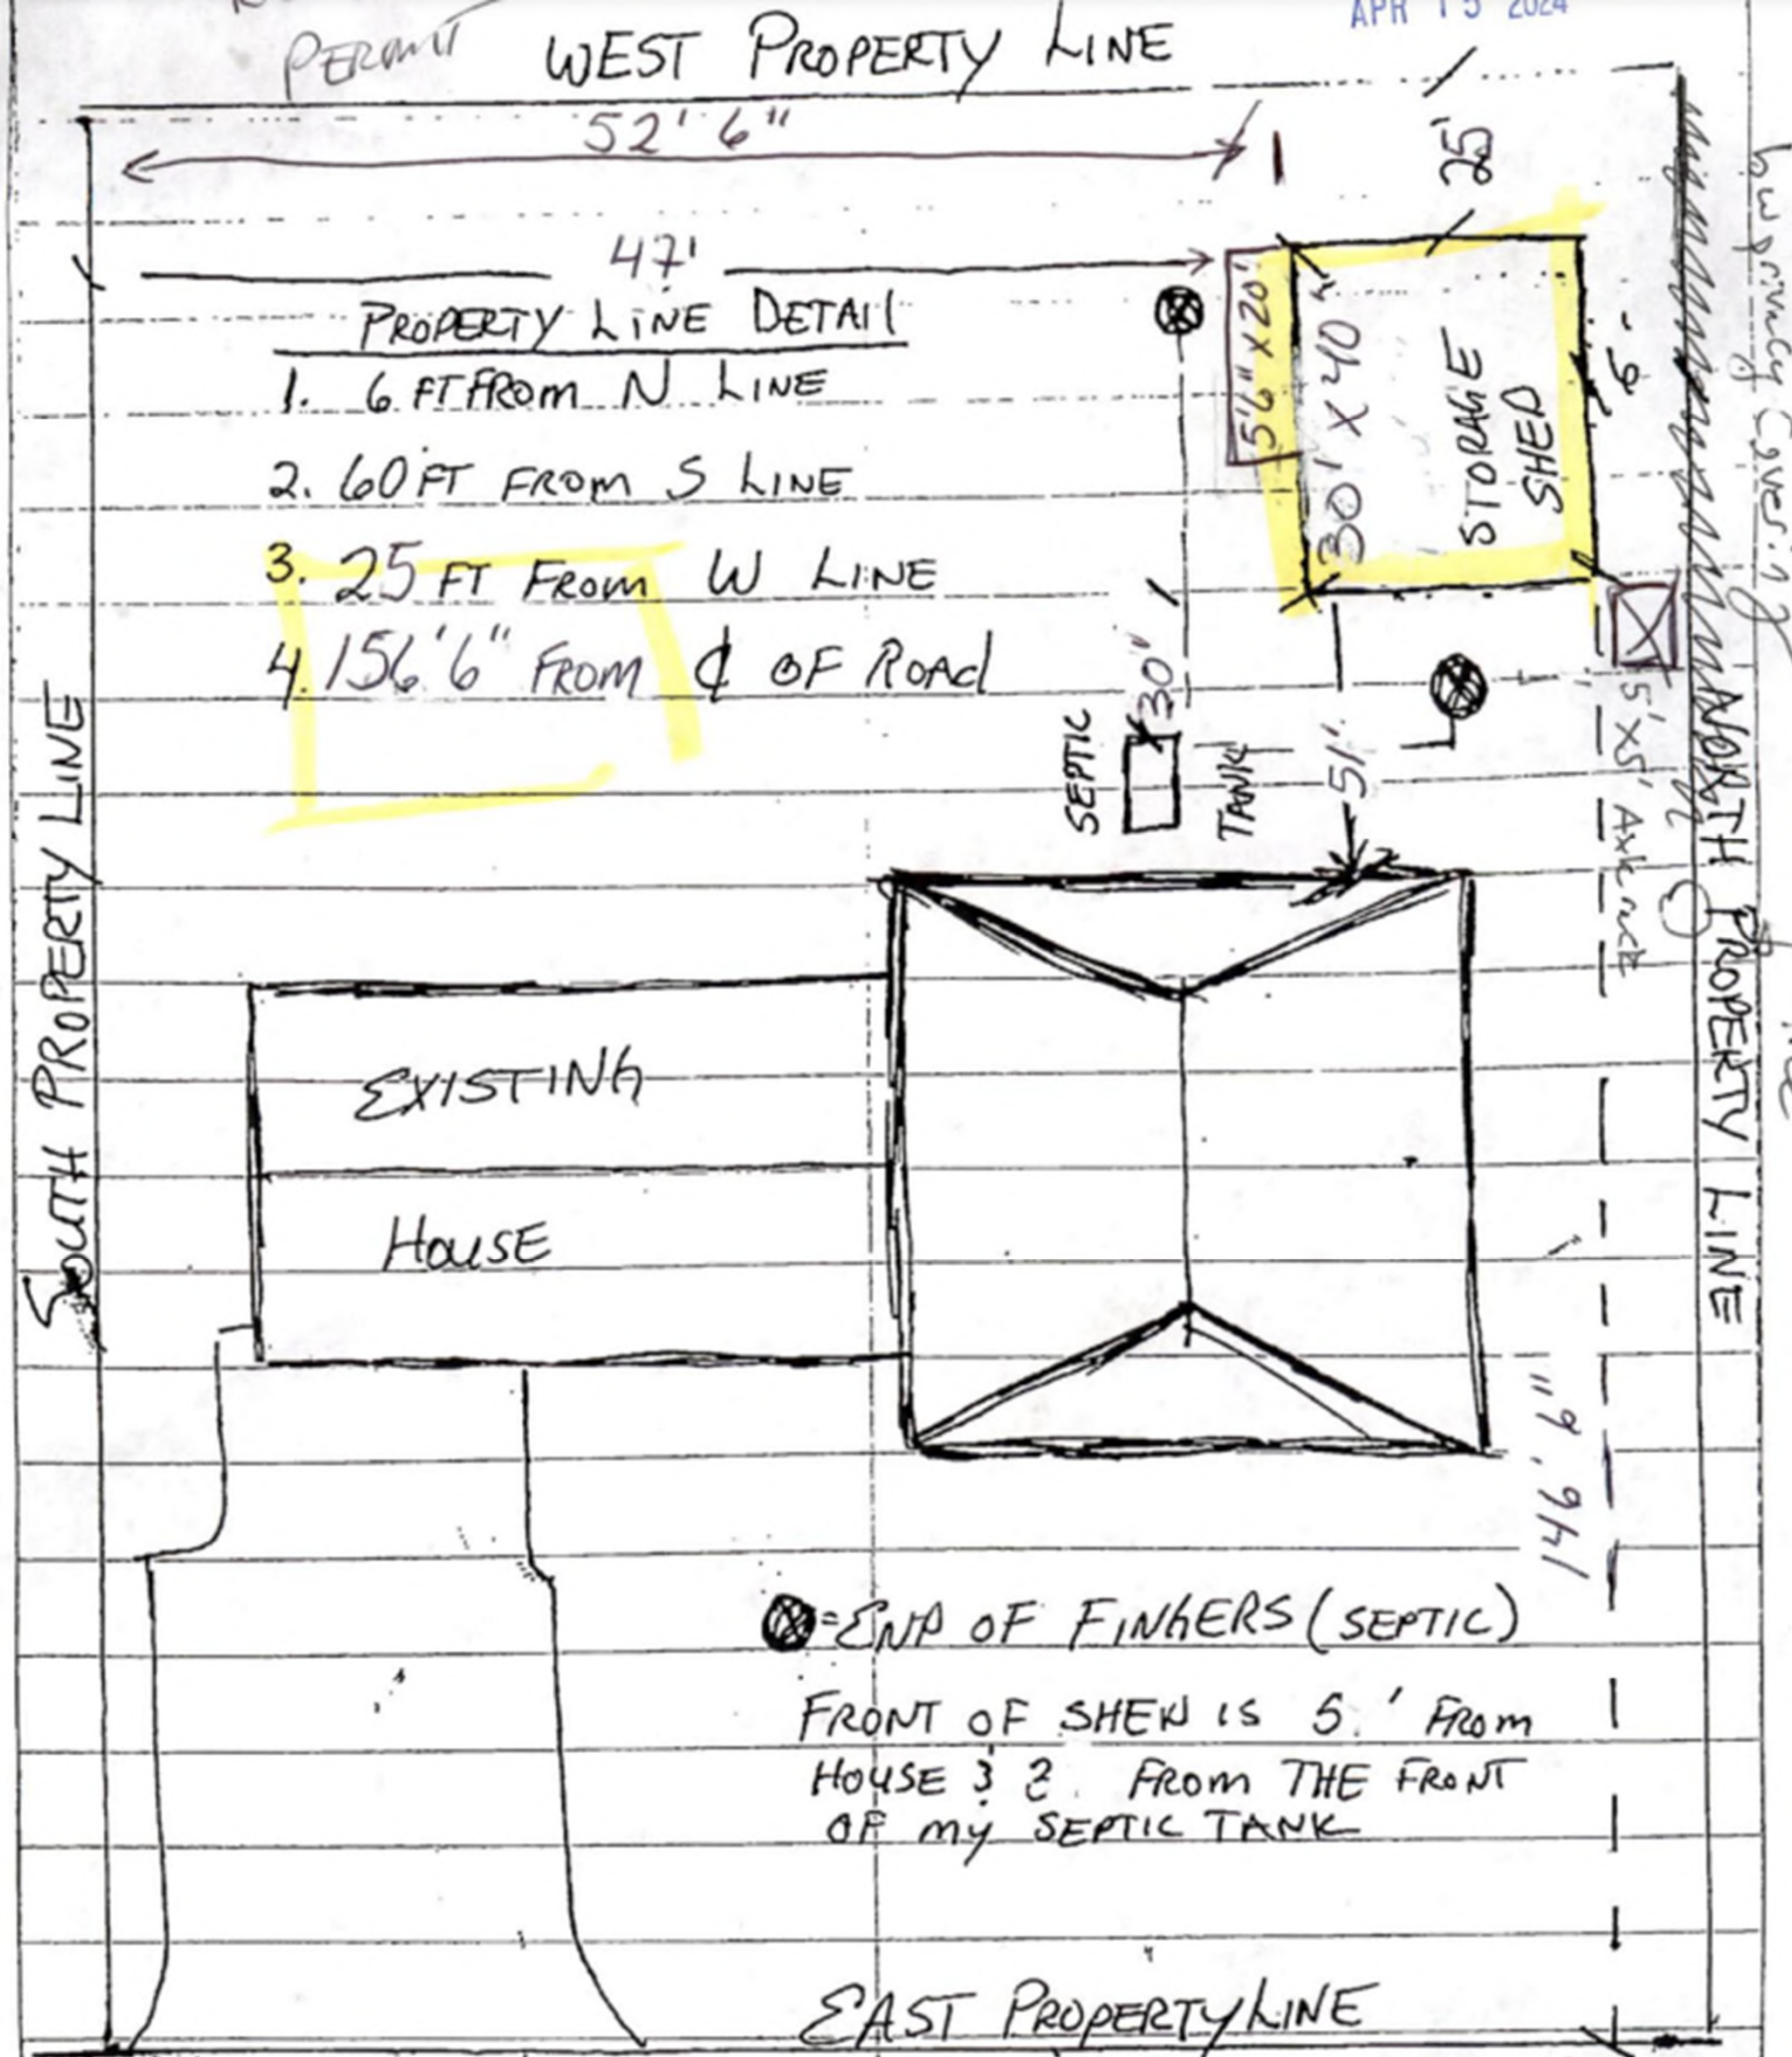 PERMIT
WEST PROPERTY LINE
APR 15 2024
52' 6"
25'
47'
PROPERTY LINE DETAIL
1. 6 FT FROM N LINE
2. 60 FT FROM S LINE
3. 25 FT FROM W LINE
4. 156'6" FROM ₵ OF ROAD
5'6" X 20'
30' X 40'
STORAGE
SHED
6'
privacy covering
SEPTIC
TANK
30"
51'
5' X 5'
NORTH PROPERTY LINE
SOUTH PROPERTY LINE
EXISTING
HOUSE
146' 6"
= END OF FINGERS (SEPTIC)
FRONT OF SHED IS 5 ' FROM
HOUSE & 2 FROM THE FRONT
OF MY SEPTIC TANK
EAST PROPERTY LINE